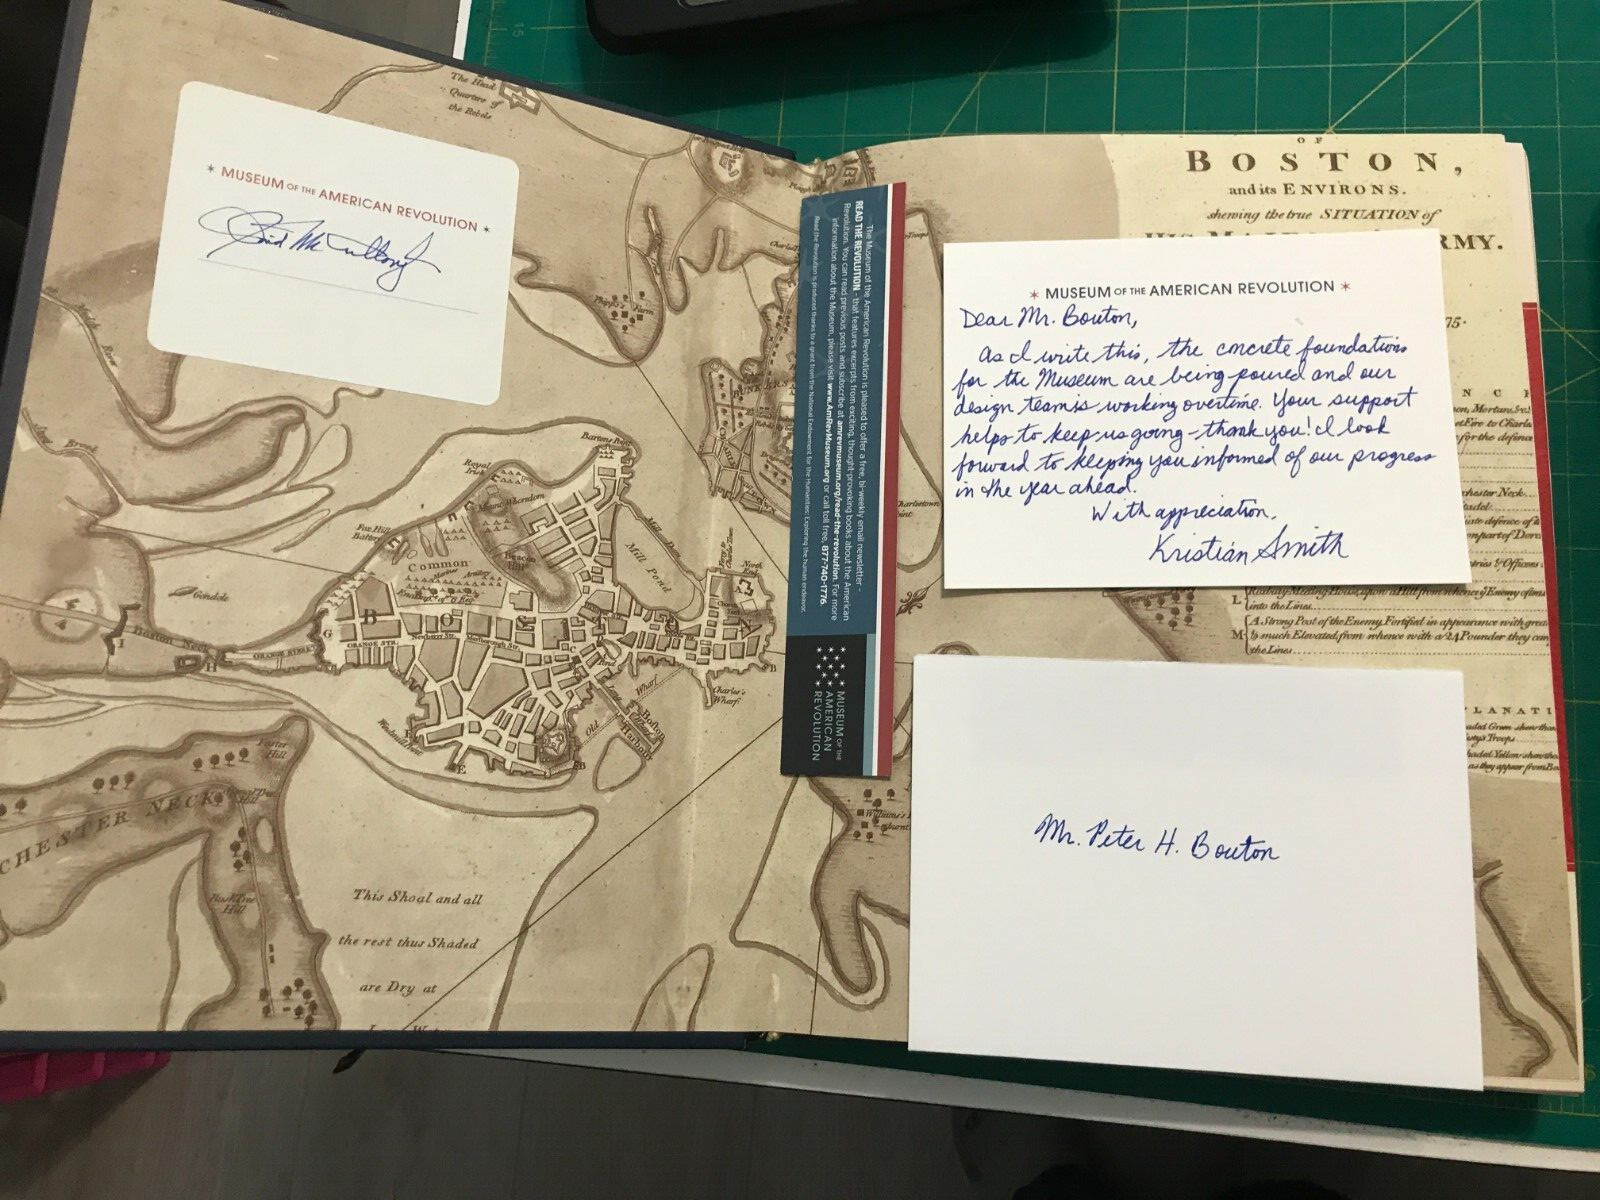 * MUSEUM OF THE AMERICAN REVOLUTION *
David McCullough
The Head
Quarters of
the Rebels
Phipps's Farm
Barton's Point
Royal
Irish
Mount Whoredom
Fox Hill
Battery
Beacon
Hill
Common
Mill Pond
Mill Dam
North
End
Gondole
Boston Neck
ORANGE STREET
ORANGE STR.
Newbury Str.
Marlborough Str.
BOSTON
Long Wharf
Old
Boston
Harbour
Charles's
Wharf
Foster
Hill
CHESTER NECK
Rush Tree
Hill
This Shoal and all
the rest thus Shaded
are Dry at
Low Wat
The Museum of the American Revolution is pleased to offer a free, bi-weekly email newsletter –
READ THE REVOLUTION – that features excerpts from exciting, thought-provoking books about the American
Revolution. You can read previous posts and subscribe at amrevmuseum.org/read-the-revolution. For more
information about the Museum, please visit www.AmRevMuseum.org or call toll free, 877-740-1776.
Read the Revolution is produced thanks to a grant from the National Endowment for the Humanities: Exploring the human endeavor.
MUSEUM OF THE
AMERICAN
REVOLUTION
OF
BOSTON,
and its ENVIRONS.
shewing the true SITUATION of
HIS MAJESTY'S ARMY.
75.
* MUSEUM OF THE AMERICAN REVOLUTION *
Dear Mr. Bouton,
As I write this, the concrete foundations
for the Museum are being poured and our
design team is working overtime. Your support
helps to keep us going – thank you! I look
forward to keeping you informed of our progress
in the year ahead.
With appreciation,
Kristian Smith
Mr. Peter H. Bouton
Charlestown
oint
into the Lines
M A Strong Post of the Enemy Fortified in appearance with grea
& much Elevated, from whence with a 24 Pounder they can
the Lines
LANATI
as they appear from Bo